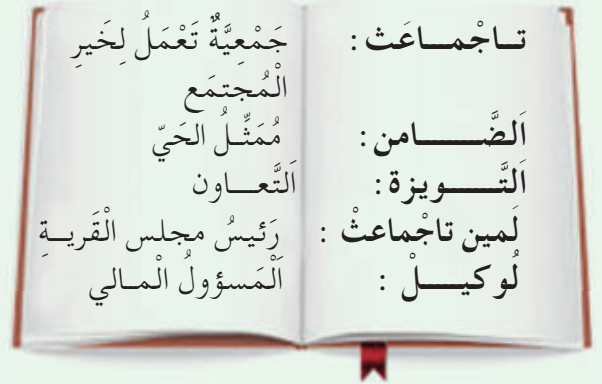 تـاجْمـــاعَث : جَمْعِيَّةٌ تَعْمَلُ لِخَيرِ
الْمُجتمَع
اَلضَّـــــامن : مُمَثِّـلُ الحَيّ
اَلتَّـــــويزة : اَلتَّعـــاون
لَمين تاجْماعثْ : رَئيسُ مجلس الْقَريـــةِ
لُوكيـــــلْ : اَلْمَسؤولُ الْمــالي